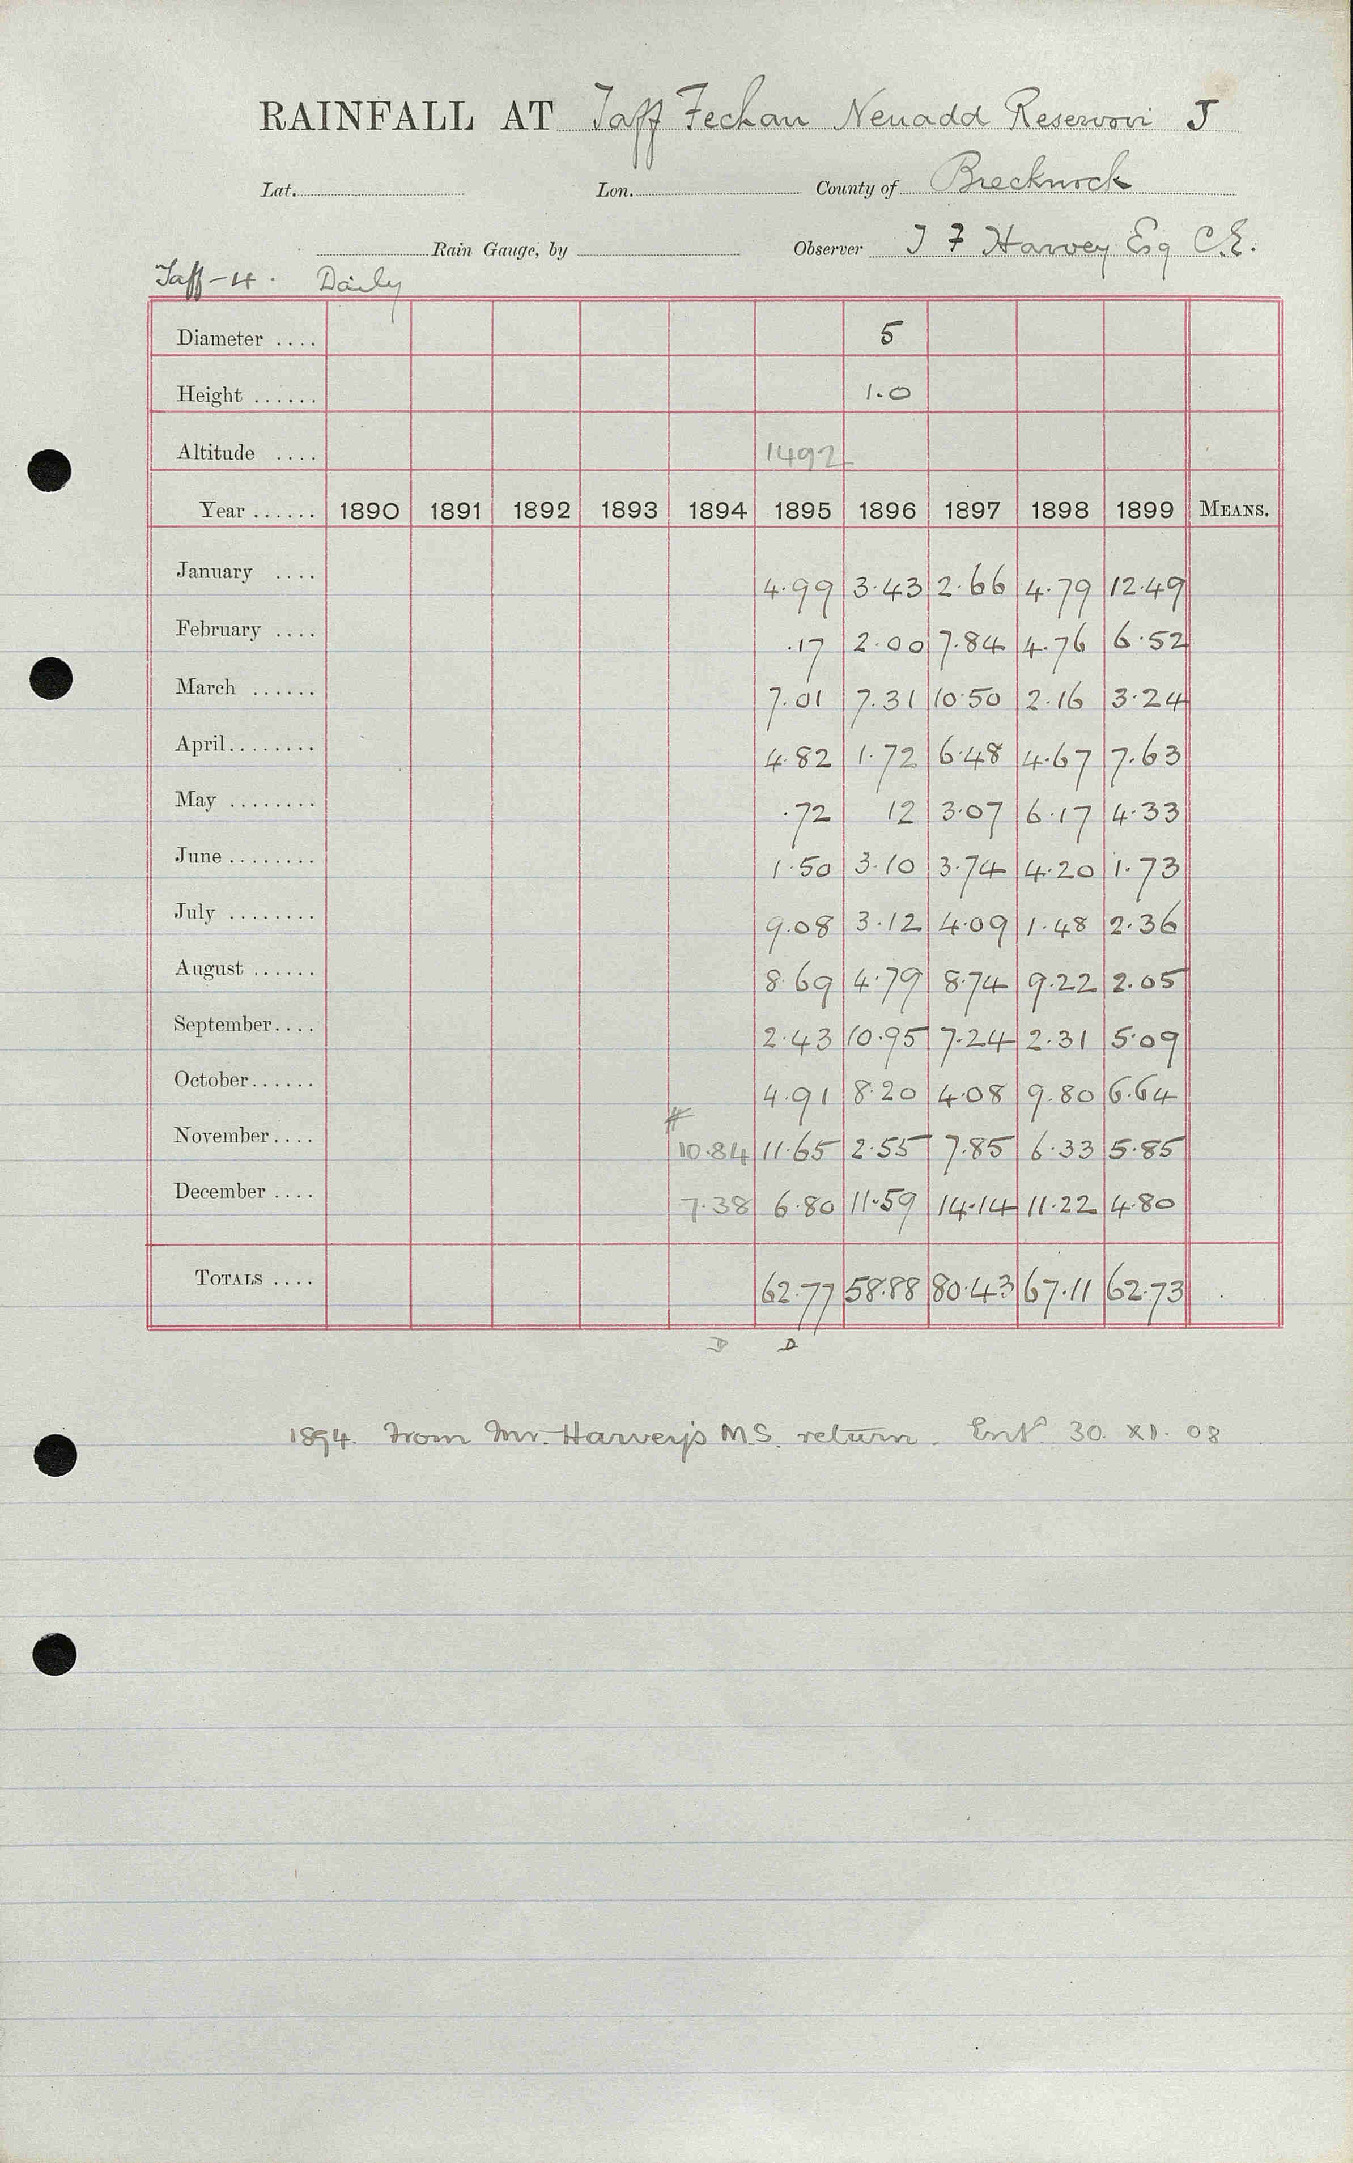 RAINFALL AT Taff Fechan Neuadd Reservoir J
Lat. Lon. County of Brecknock
Rain Gauge, by Observer J F Harvey Esq C.E.
Taff - 4. Daily
Diameter .... 5
Height ...... 1.0
Altitude .... 1492
Year ...... 1890 1891 1892 1893 1894 1895 1896 1897 1898 1899 MEANS.
January .... 4.99 3.43 2.66 4.79 12.49
February .... .17 2.00 7.84 4.76 6.52
March ...... 7.01 7.31 10.50 2.16 3.24
April ........ 4.82 1.72 6.48 4.67 7.63
May ........ .72 12 3.07 6.17 4.33
June ........ 1.50 3.10 3.74 4.20 1.73
July ........ 9.08 3.12 4.09 1.48 2.36
August ...... 8.69 4.79 8.74 9.22 2.05
September .... 2.43 10.95 7.24 2.31 5.09
October ...... 4.91 8.20 4.08 9.80 6.64
#
November .... 10.84 11.65 2.55 7.85 6.33 5.85
December .... 7.38 6.80 11.59 14.14 11.22 4.80
TOTALS .... 62.77 58.88 80.43 67.11 62.73
D D
1894. From Mr. Harvey's M.S. return. Entd 30. XI. 08